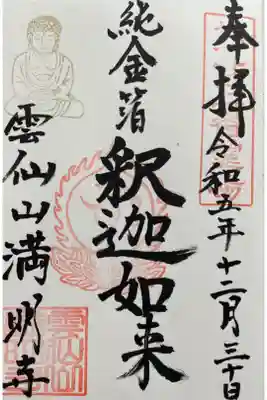 奉拝
令和五年十二月三十日
純金箔
釈迦如来
雲仙山満明寺